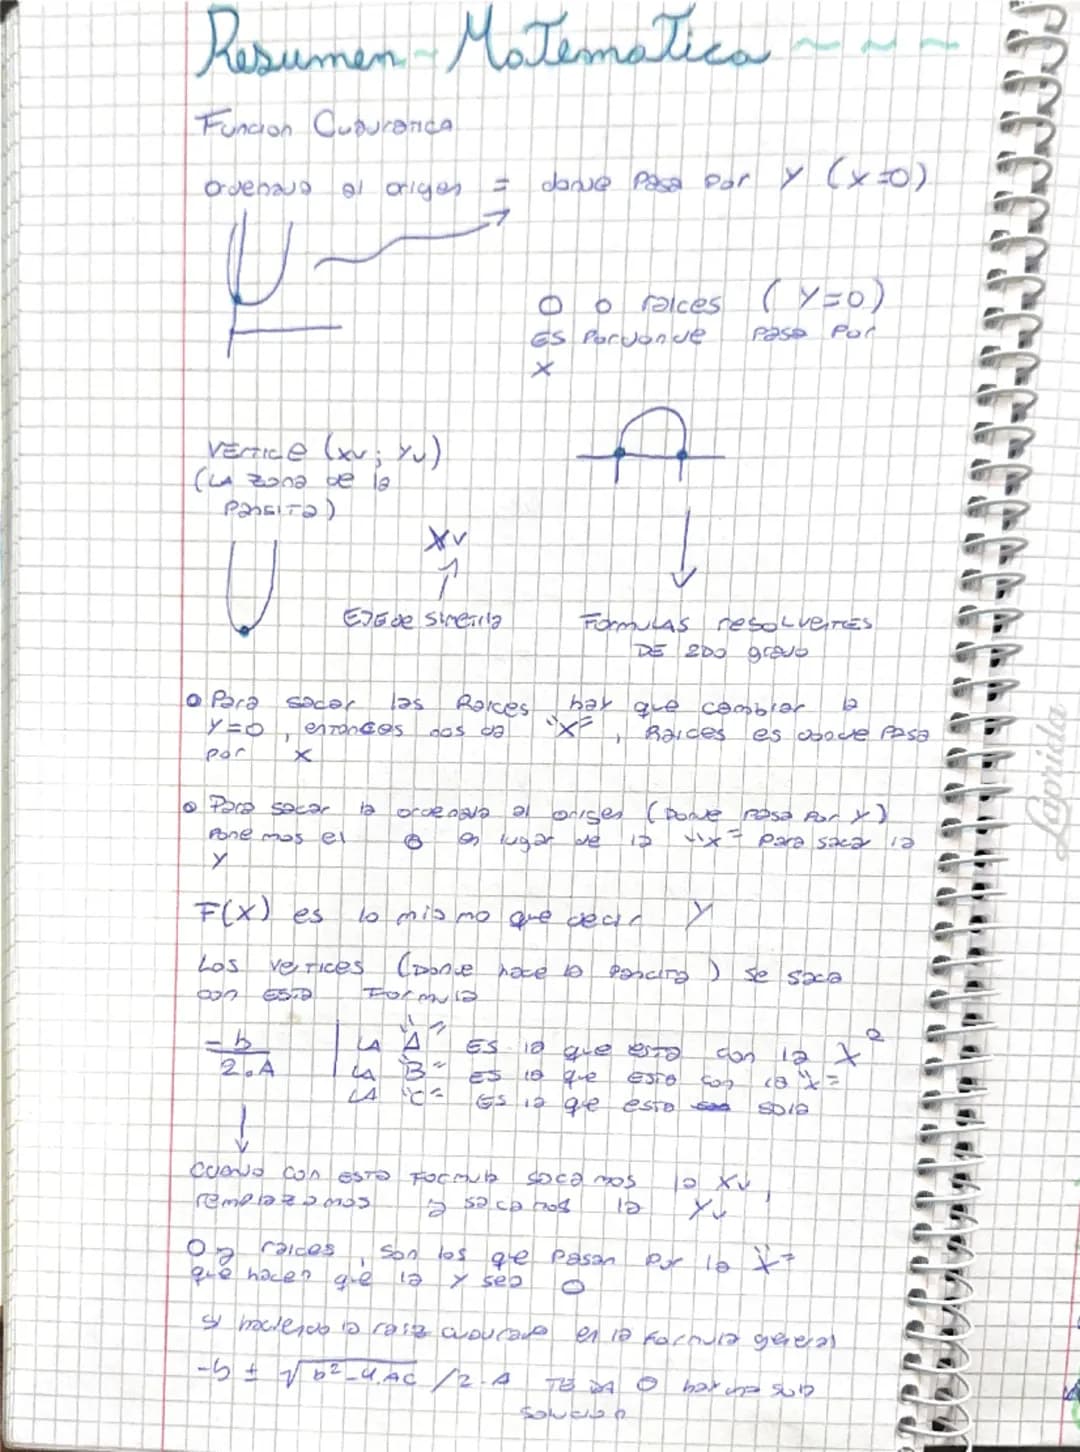 Resumen - Matematica
Funcion Cuadratica
ordenada al origen = donde pasa por y (x=0)
0 o raices (y=0)
ES Por donde pasa por
x
VErtice (xv; yv)
(LA zona de la
Pansita)
Xv
EJE de simetria
Formulas resolventes
DE 2DO grado
o Para sacar las Raices hay que cambiar la
y=0, entonces nos da "x", Raices es donde pasa
por x
o Para sacar la ordenada al origen (Donde pasa por y)
Ponemos el 0 en lugar de la "x" para sacar la
y
F(x) es lo mismo que decir y
Los vertices (Donde hace la pancita) se saca
con esta Formula
-b
2.A
LA "A" ES la que esta con la x²
LA "B" ES la que esta con la "x"
LA "C" ES la que esta sola
Cuando con esta Formula sacamos la xv,
remplazamos y sacamos la yv
0 y raices, son los que pasan por la "x"
que hacen que la y sea 0
si haciendo la raiz cuadrada en la formula general
-b ± √b²-4.AC /2.A TE DA 0 hay una sola
solucion
Laprida